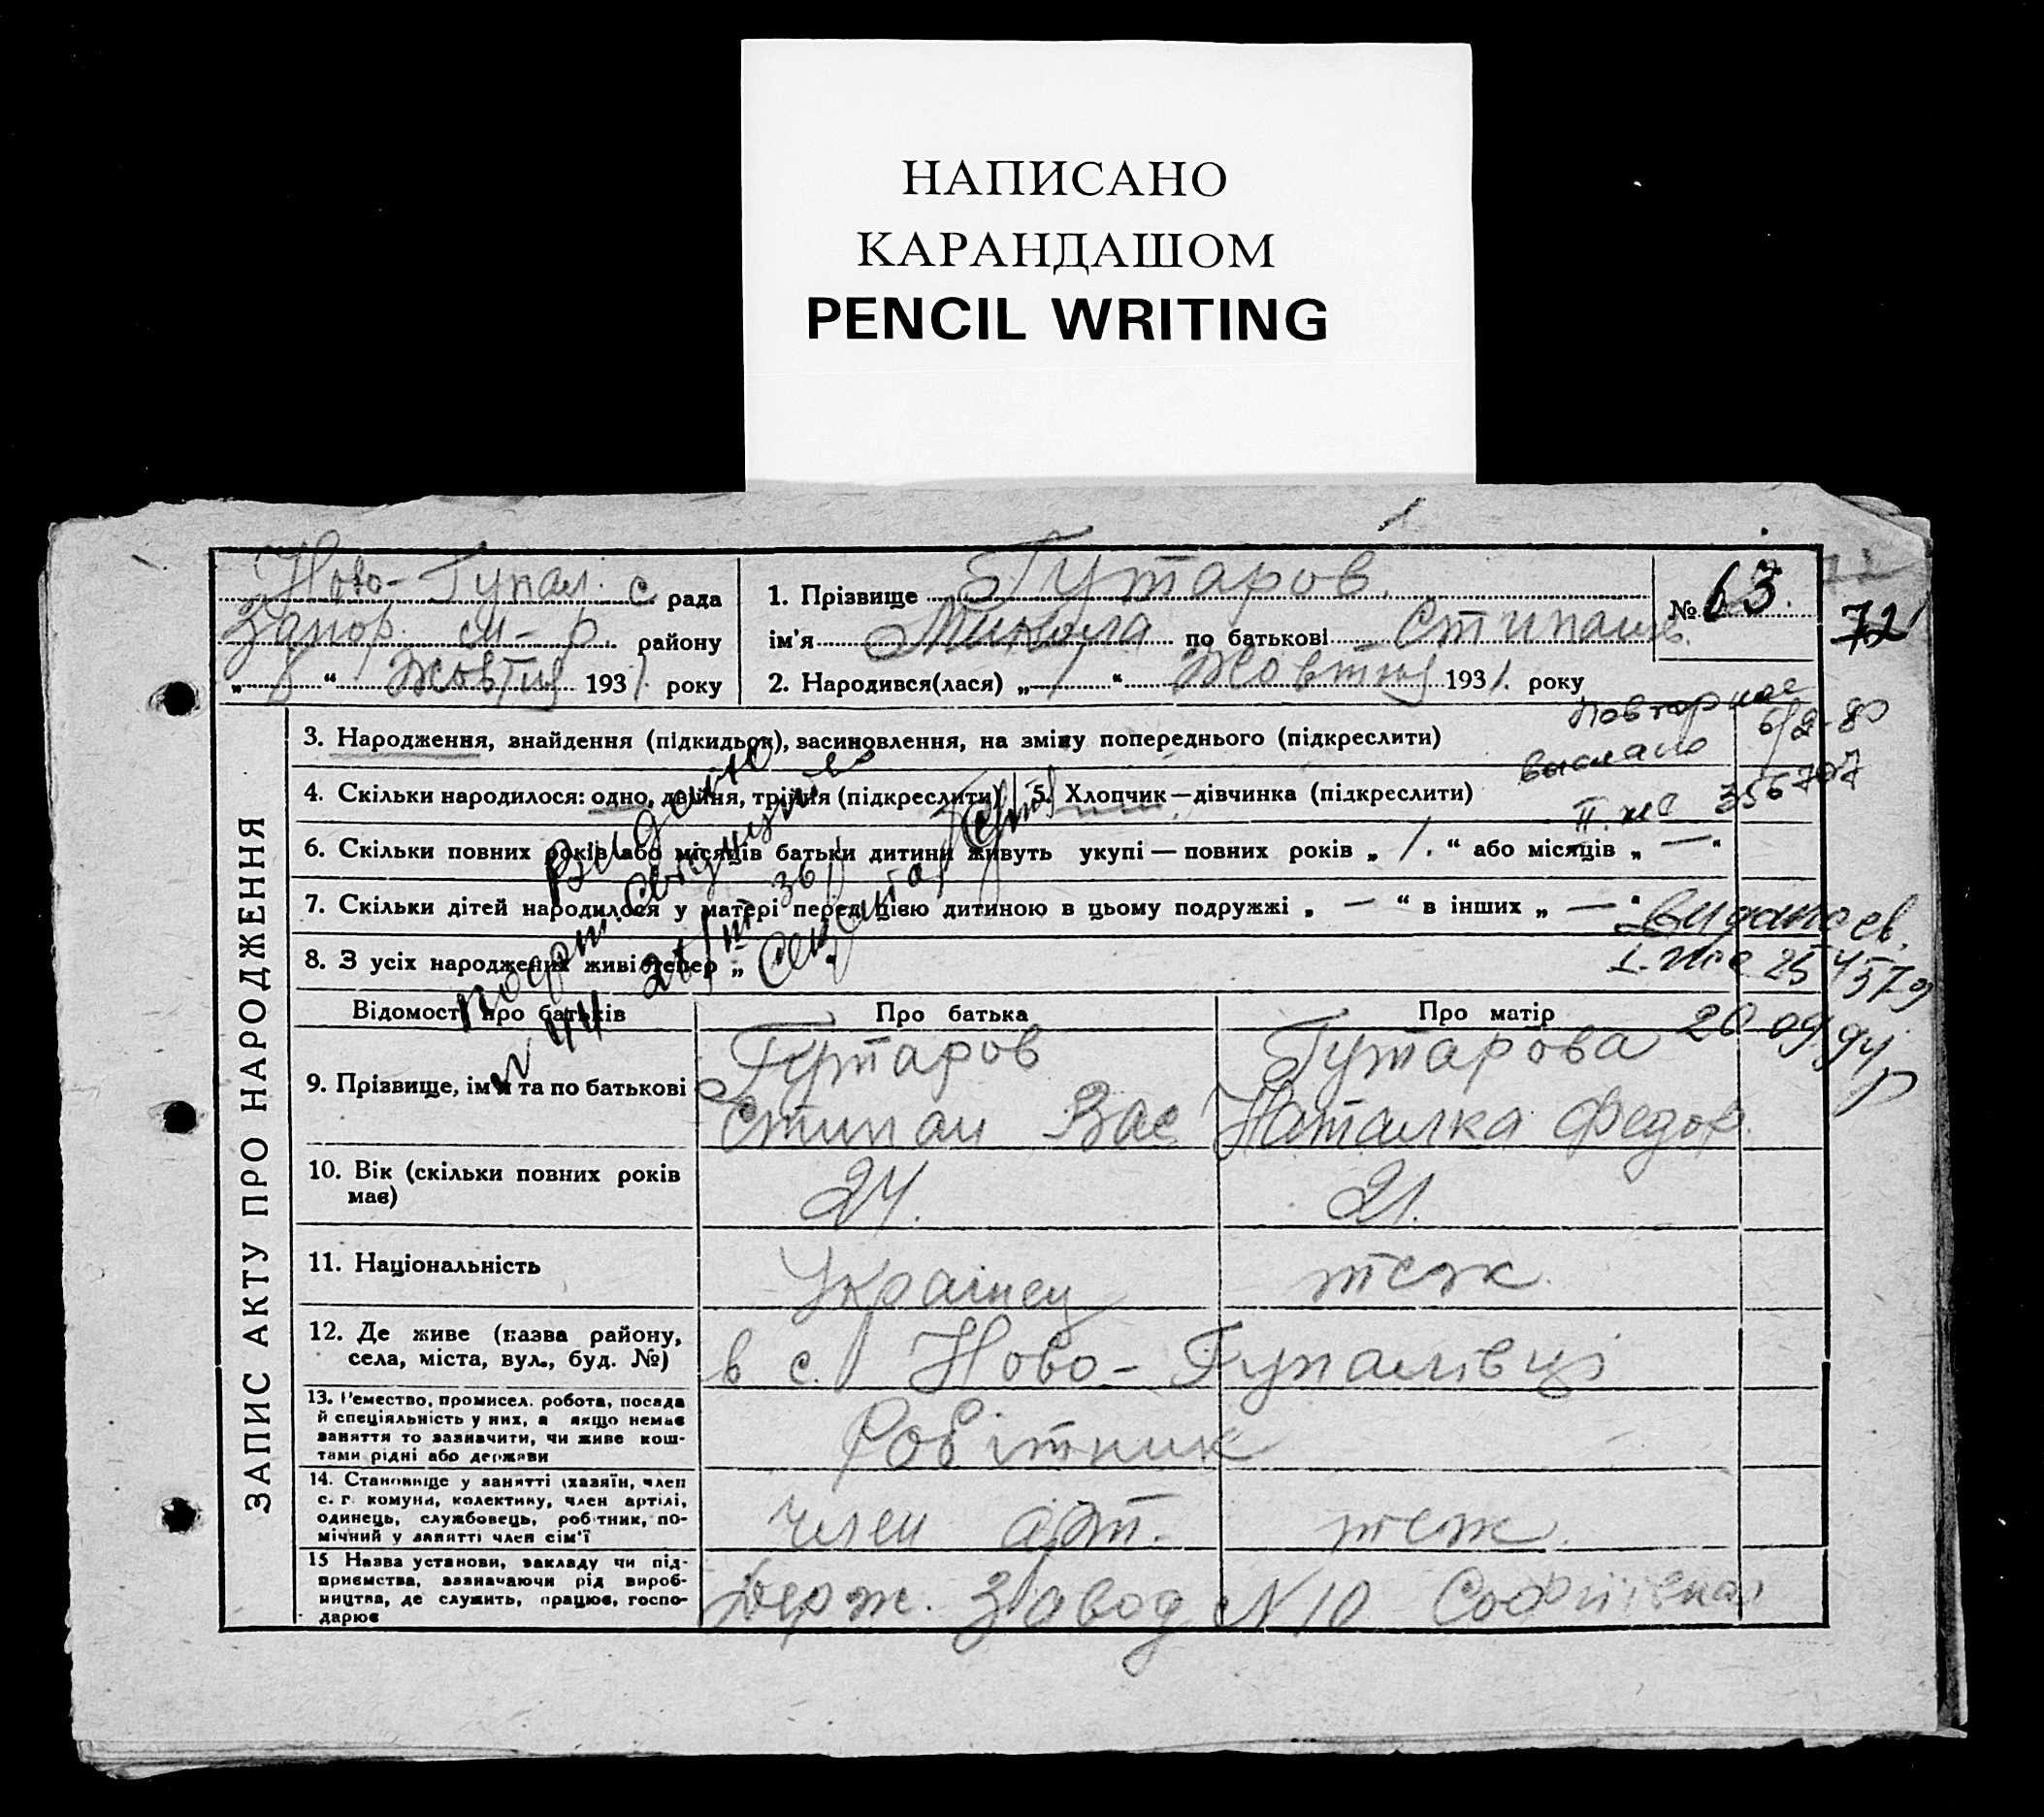 НАПИСАНО
КАРАНДАШОМ
PENCIL WRITING
1
Ново-Гупал. с рада
Запор. м-р. району
„ 8 “ Жовтня 1931. року
1. Прізвище Гутаров
ім'я Микола по батькові Стипанов.
2. Народився(лася) „ 1 “ Жовтня 1931. року
№ 63.
72
ЗАПИС АКТУ ПРО НАРОДЖЕННЯ
3. Народження, знайдення (підкидьок), засиновлення, на зміну попереднього (підкреслити)
Повторное
6/2-80
выслано
II. жС 356797
4. Скільки народилося: одно, двійня, трійня (підкреслити)
5. Хлопчик — дівчинка (підкреслити)
6. Скільки повних років або місяців батьки дитини живуть укупі — повних років „ 1. “ або місяців „ — “
7. Скільки дітей народилося у матері перед цією дитиною в цьому подружжі „ — “ в інших „ — “
8. З усіх народжених живі тепер „
Видано
N 44 21/III 36
Видано св.
20 09 94
Відомості про батьків
Про батька
Про матір
9. Прізвище, ім'я та по батькові
Гутаров
Стипан Вас
Гутарова
Наталка Федор.
10. Вік (скільки повних років має)
24.
21.
11. Національність
Українец
теж
12. Де живе (назва району, села, міста, вул., буд. №)
в с. Ново-Гупалівці
13. Ремество, промисел. робота, посада
й спеціяльність у них, а якщо немає
заняття то зазначити, чи живе кош-
тами рідні або держави
Робітник
14. Становище у занятті (хазяїн, член
с. г. комуни, колективу, член артілі,
одинець, службовець, робітник, по-
мічний у занятті член сім'ї
член арт.
теж.
15 Назва установи, закладу чи під-
приємства, зазначаючи рід вироб-
ництва, де служить, працює, госпо-
дарює
Держ. Завод N 10